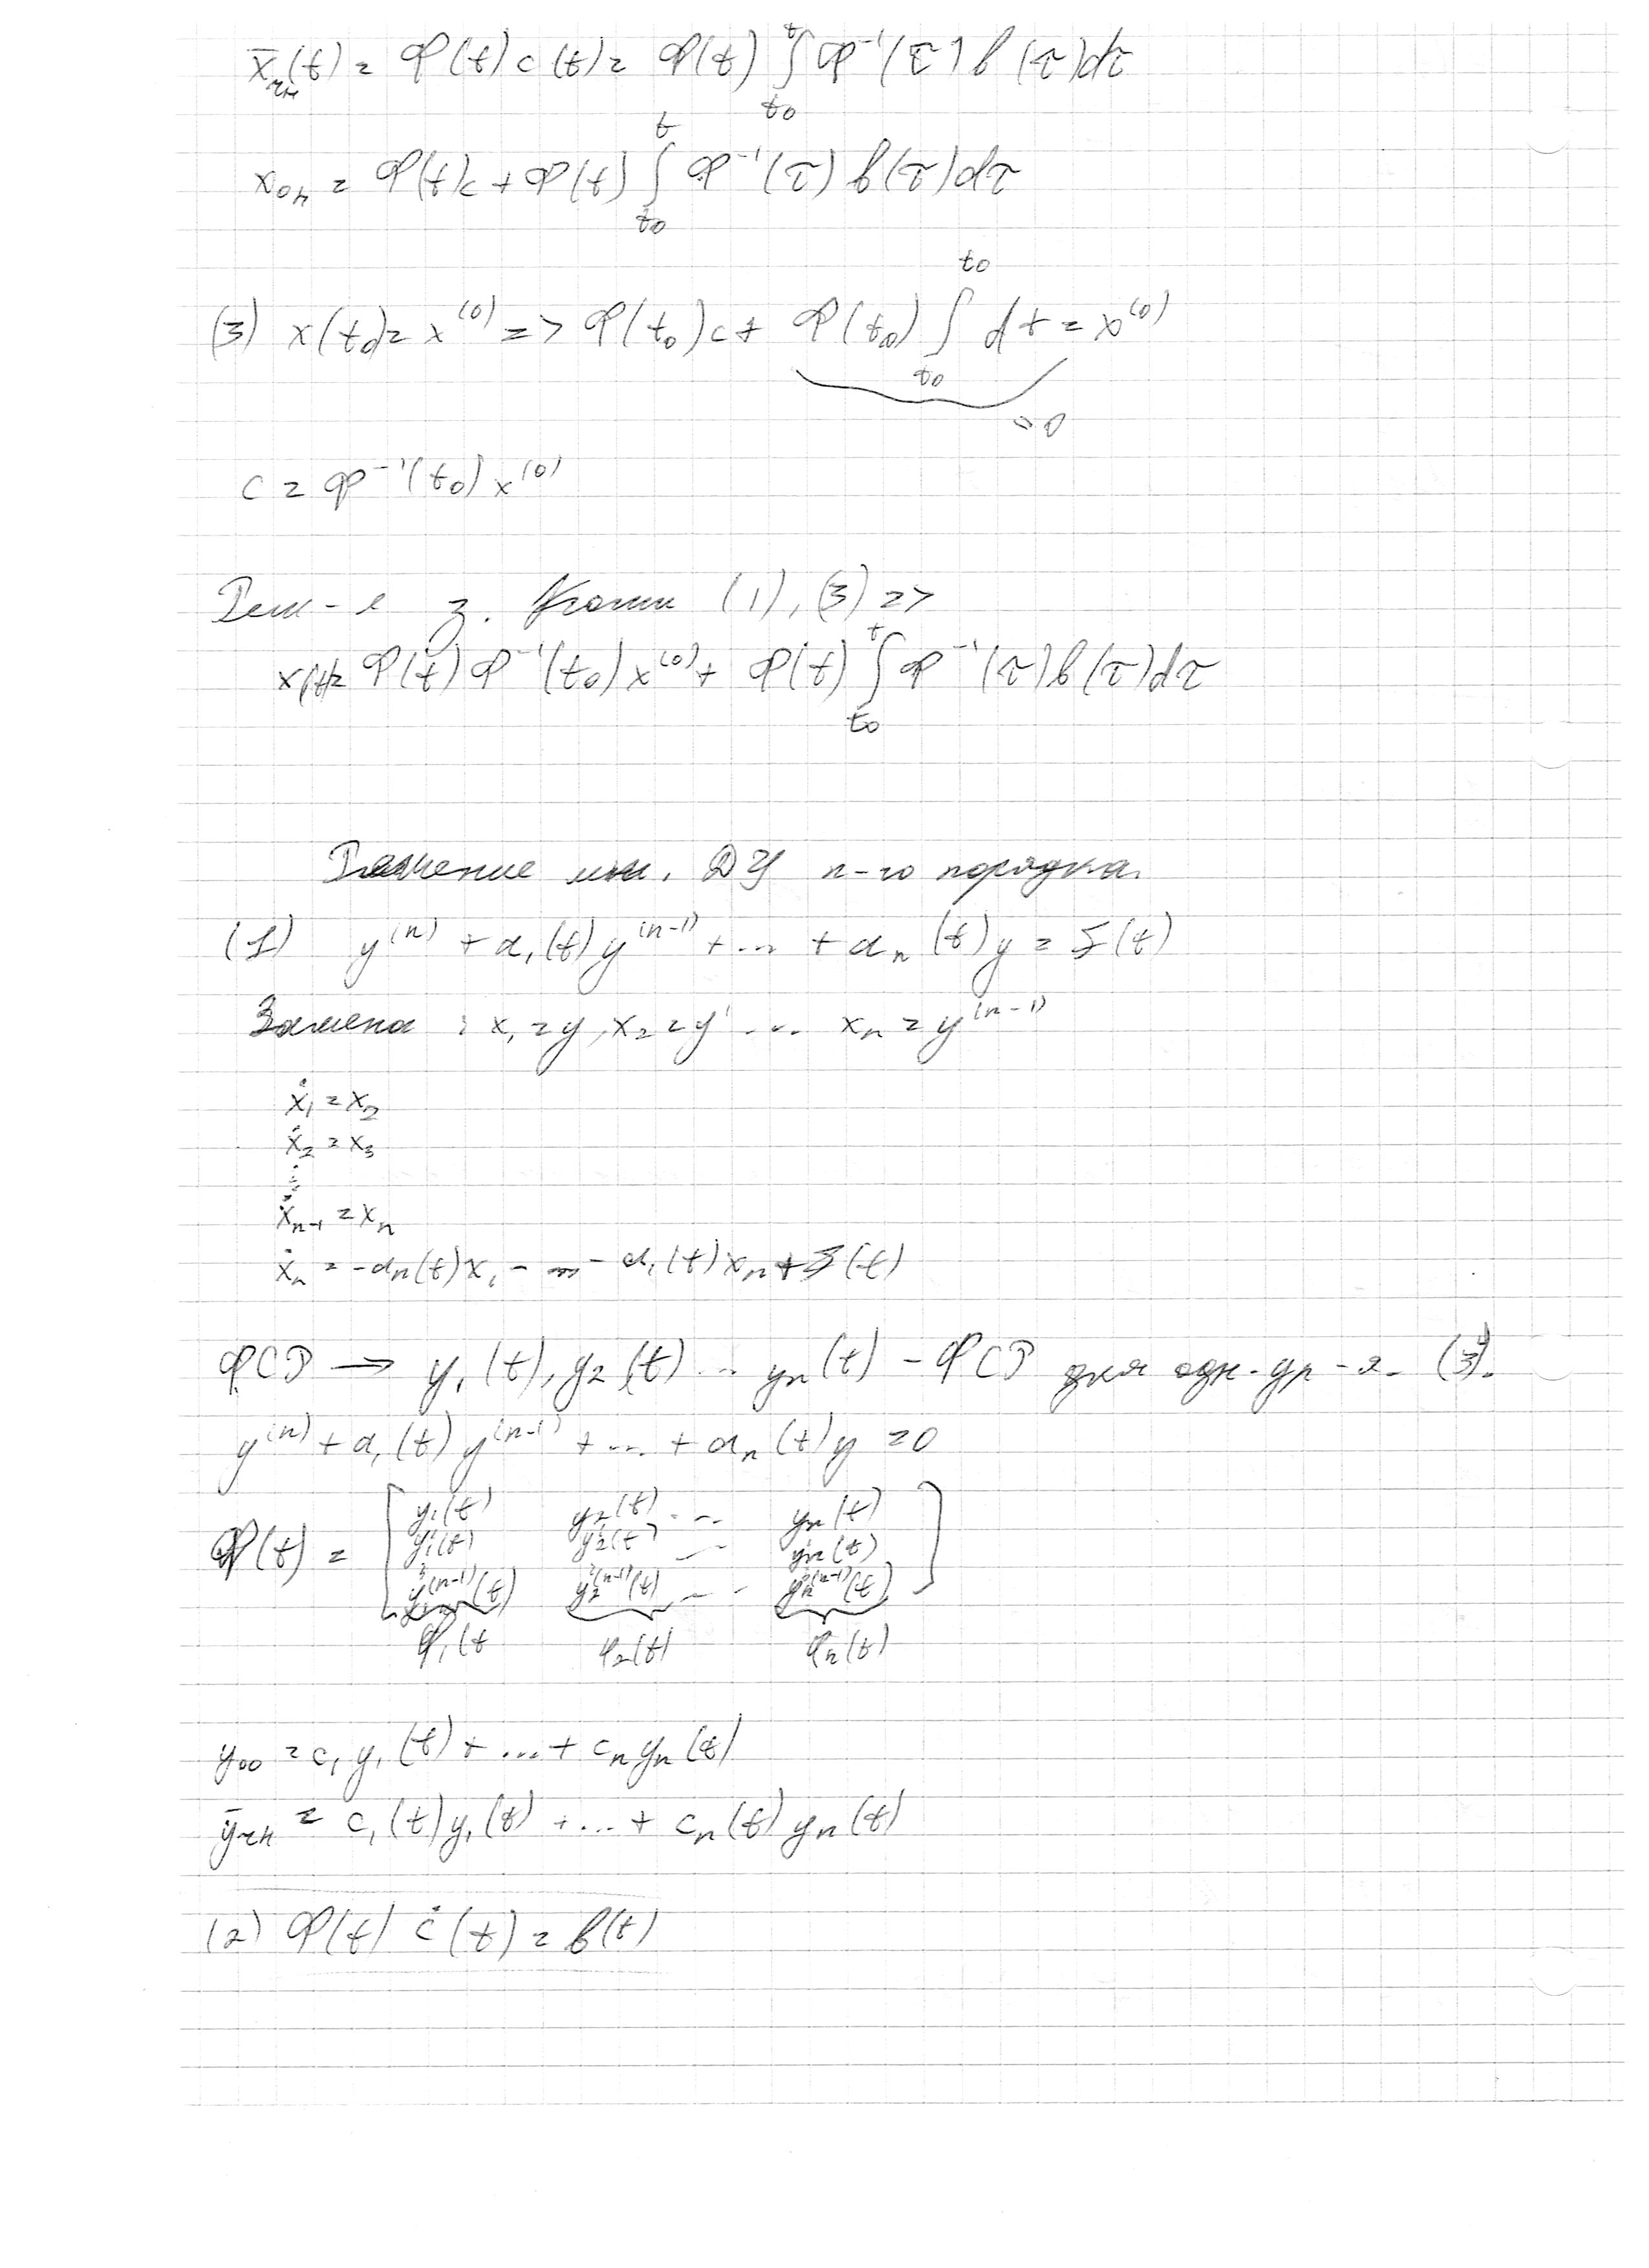 x̄чн(t) = Φ(t) c(t) = Φ(t) ∫_{t₀}^{t} Φ⁻¹(τ) b(τ)dτ
xон = Φ(t)c + Φ(t) ∫_{t₀}^{t} Φ⁻¹(τ) b(τ)dτ
(3) x(t₀) = x⁽⁰⁾ => Φ(t₀)c + Φ(t₀) ∫_{t₀}^{t₀} dt = x⁽⁰⁾
= 0
c = Φ⁻¹(t₀) x⁽⁰⁾
Реш-е з. Коши (1), (3) =>
x(t) = Φ(t) Φ⁻¹(t₀) x⁽⁰⁾ + Φ(t) ∫_{t₀}^{t} Φ⁻¹(τ) b(τ)dτ
Решение лин. ДУ n-го порядка.
(1) y⁽ⁿ⁾ + a₁(t) y⁽ⁿ⁻¹⁾ + ... + aₙ(t) y = f(t)
Замена : x₁ = y, x₂ = y' ... xₙ = y⁽ⁿ⁻¹⁾
ẋ₁ = x₂
ẋ₂ = x₃
⋮
ẋₙ₋₁ = xₙ
ẋₙ = -aₙ(t)x₁ - ... - a₁(t)xₙ + f(t)
ФСР → y₁(t), y₂(t) ... yₙ(t) - ФСР для одн. ур-я. (3).
y⁽ⁿ⁾ + a₁(t) y⁽ⁿ⁻¹⁾ + ... + aₙ(t) y = 0
y₁(t) y₂(t) ... yₙ(t)
Φ(t) = y₁'(t) y₂'(t) ... yₙ'(t)
y₁⁽ⁿ⁻¹⁾(t) y₂⁽ⁿ⁻¹⁾(t) ... yₙ⁽ⁿ⁻¹⁾(t)
φ₁(t φ₂(t) φₙ(t)
yоо = c₁ y₁(t) + ... + cₙ yₙ(t)
ȳчн = c₁(t) y₁(t) + ... + cₙ(t) yₙ(t)
(2) Φ(t) ċ(t) = b(t)